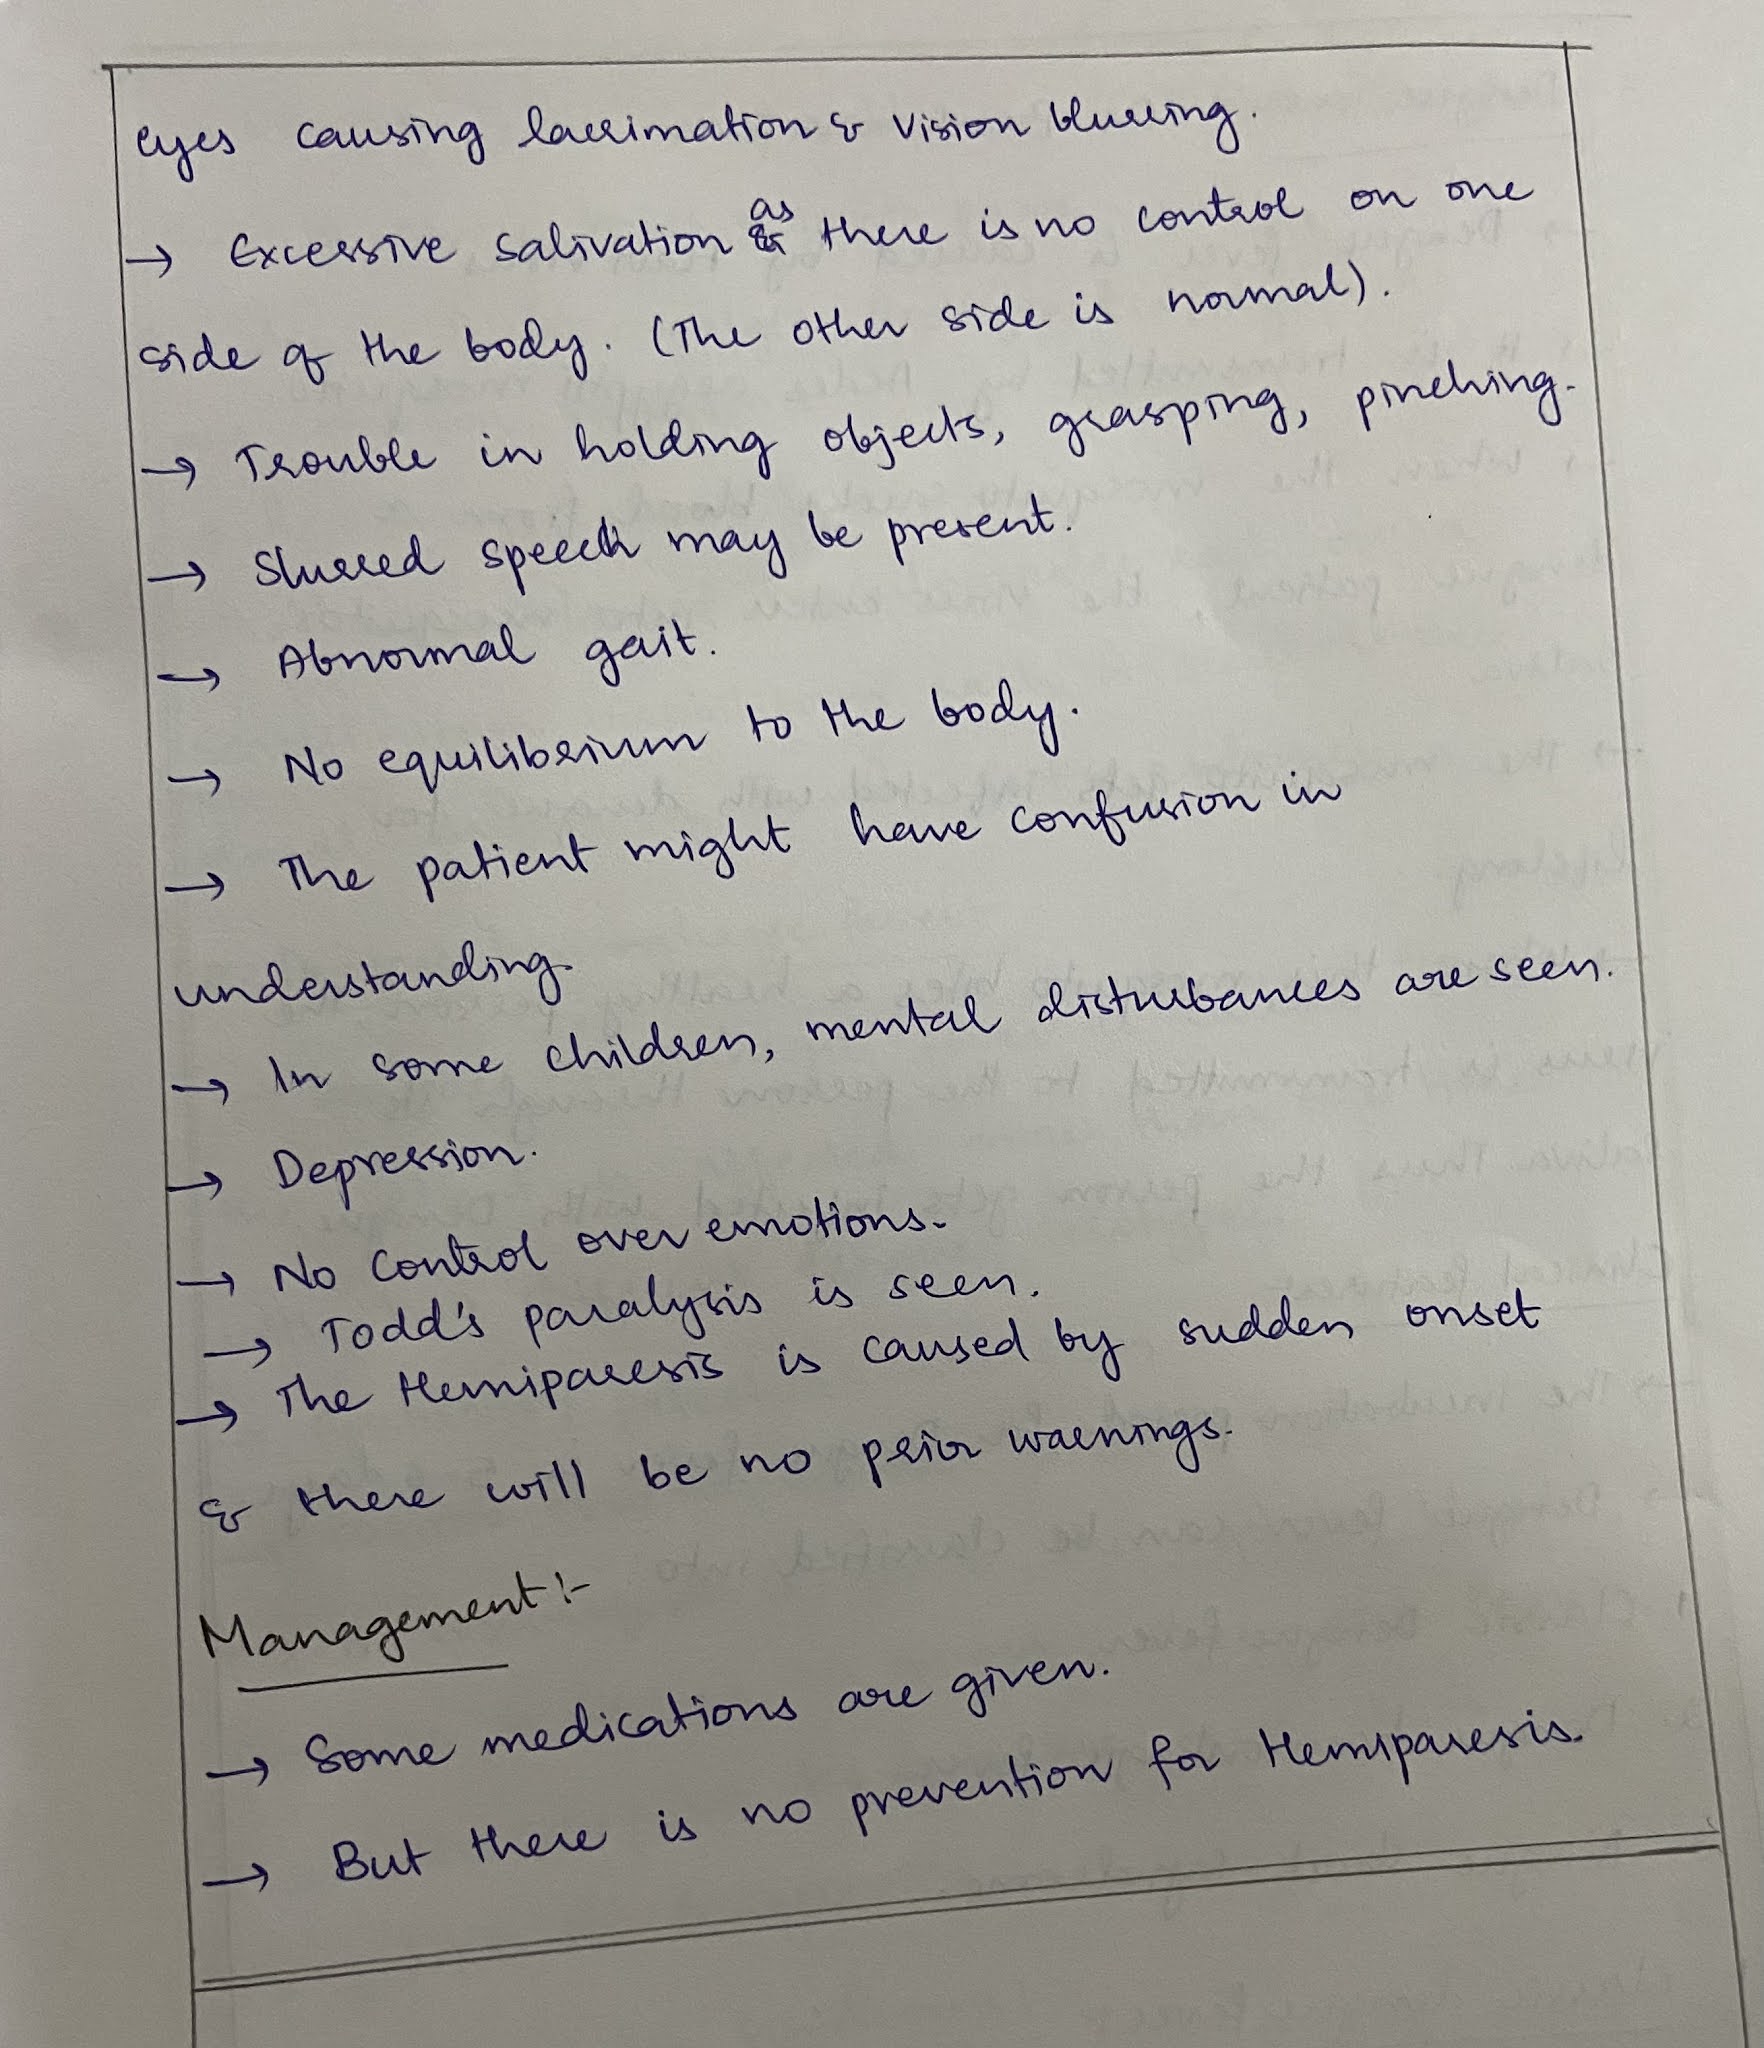 eyes causing lacrimation & vision blurring.
→ Excessive salivation as there is no control on one
side of the body. (The other side is normal).
→ Trouble in holding objects, grasping, pinching.
→ Slurred speech may be present.
→ Abnormal gait.
→ No equilibrium to the body.
→ The patient might have confusion in
understanding.
→ In some children, mental disturbances are seen.
→ Depression.
→ No control over emotions.
→ Todd's paralysis is seen.
→ The Hemiparesis is caused by sudden onset
& there will be no prior warnings.
Management:-
→ Some medications are given.
→ But there is no prevention for Hemiparesis.